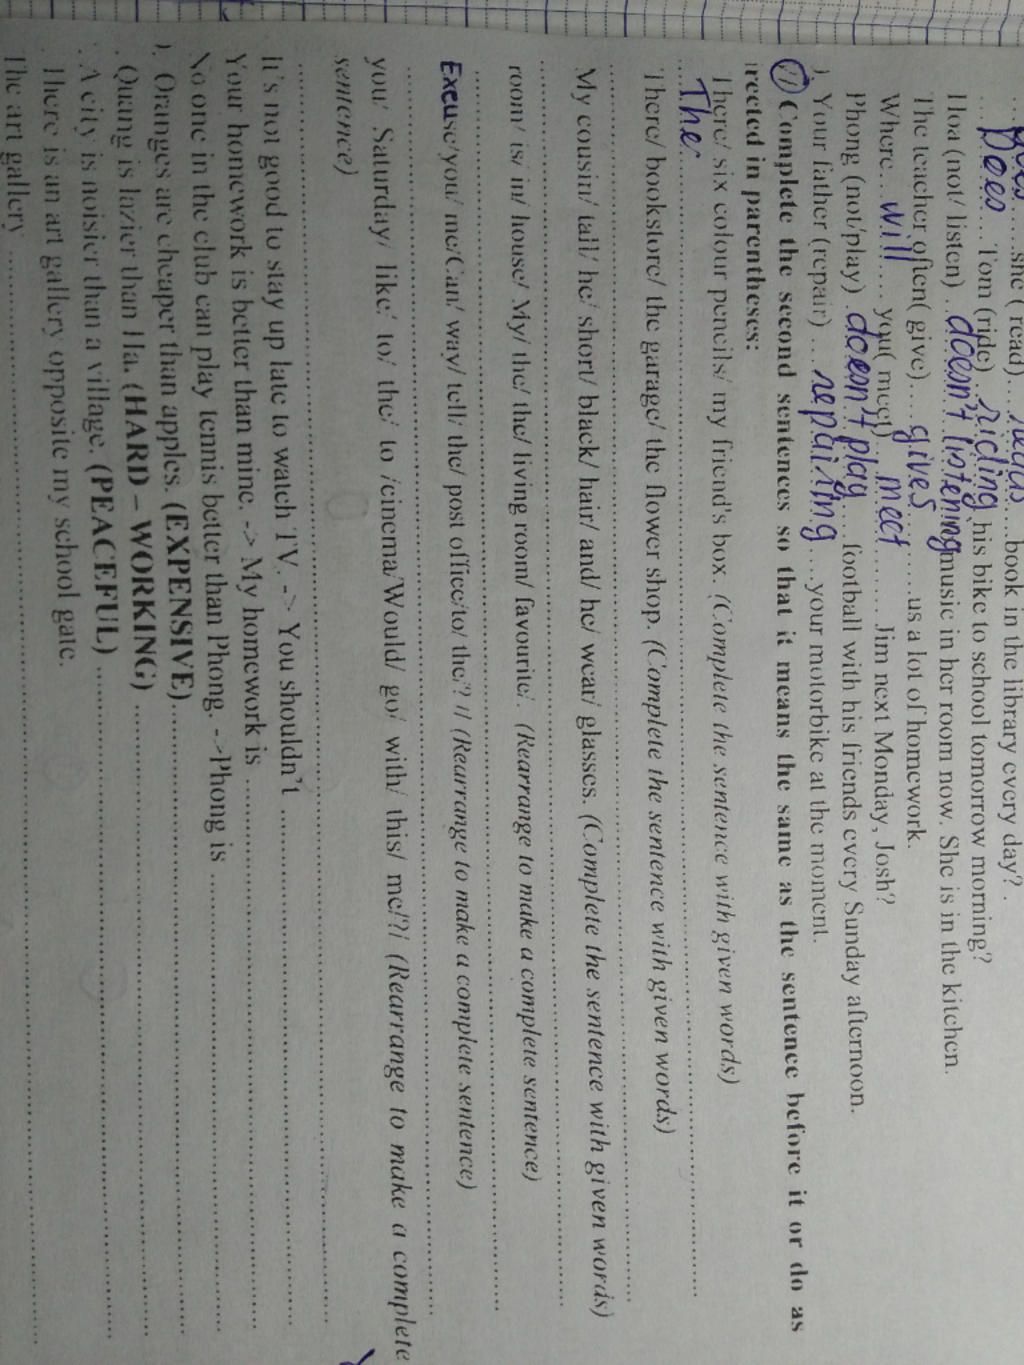 she ( read)....reads....book in the library every day?.
....Does... Tom (ride)..riding his bike to school tomorrow morning?
Hoa (not/ listen) ..doesn't listening music in her room now. She is in the kitchen.
The teacher often( give)....gives......us a lot of homework.
Where....will..... you( meet) meet........ Jim next Monday, Josh?
Phong (not/play) .doesn't play.....football with his friends every Sunday afternoon.
Your father (repair) .... repairing ....your motorbike at the moment.
Complete the second sentences so that it means the same as the sentence before it or do as
irected in parentheses:
There/ six colour pencils/ my friend's box. (Complete the sentence with given words)
The
There/ bookstore/ the garage/ the flower shop. (Complete the sentence with given words)
My cousin/ tall/ he/ short/ black/ hair/ and/ he/ wear/ glasses. (Complete the sentence with given words)
room/ is/ in/ house/ My/ the/ the/ living room/ favourite/. (Rearrange to make a complete sentence)
Excuse/you/ me/Can/ way/ tell/ the/ post office/to/ the/? // (Rearrange to make a complete sentence)
you/ Saturday/ like/ to/ the/ to /cinema/Would/ go/ with/ this/ me/?/ (Rearrange to make a complete
sentence)
It's not good to stay up late to watch TV. -> You shouldn't ..........
Your homework is better than mine. -> My homework is ..........
No one in the club can play tennis better than Phong. ->Phong is ..........
). Oranges are cheaper than apples. (EXPENSIVE)..........
. Quang is lazier than Ha. (HARD – WORKING) ..........
. A city is noisier than a village. (PEACEFUL) ..........
. There is an art gallery opposite my school gate.
The art gallery ..........